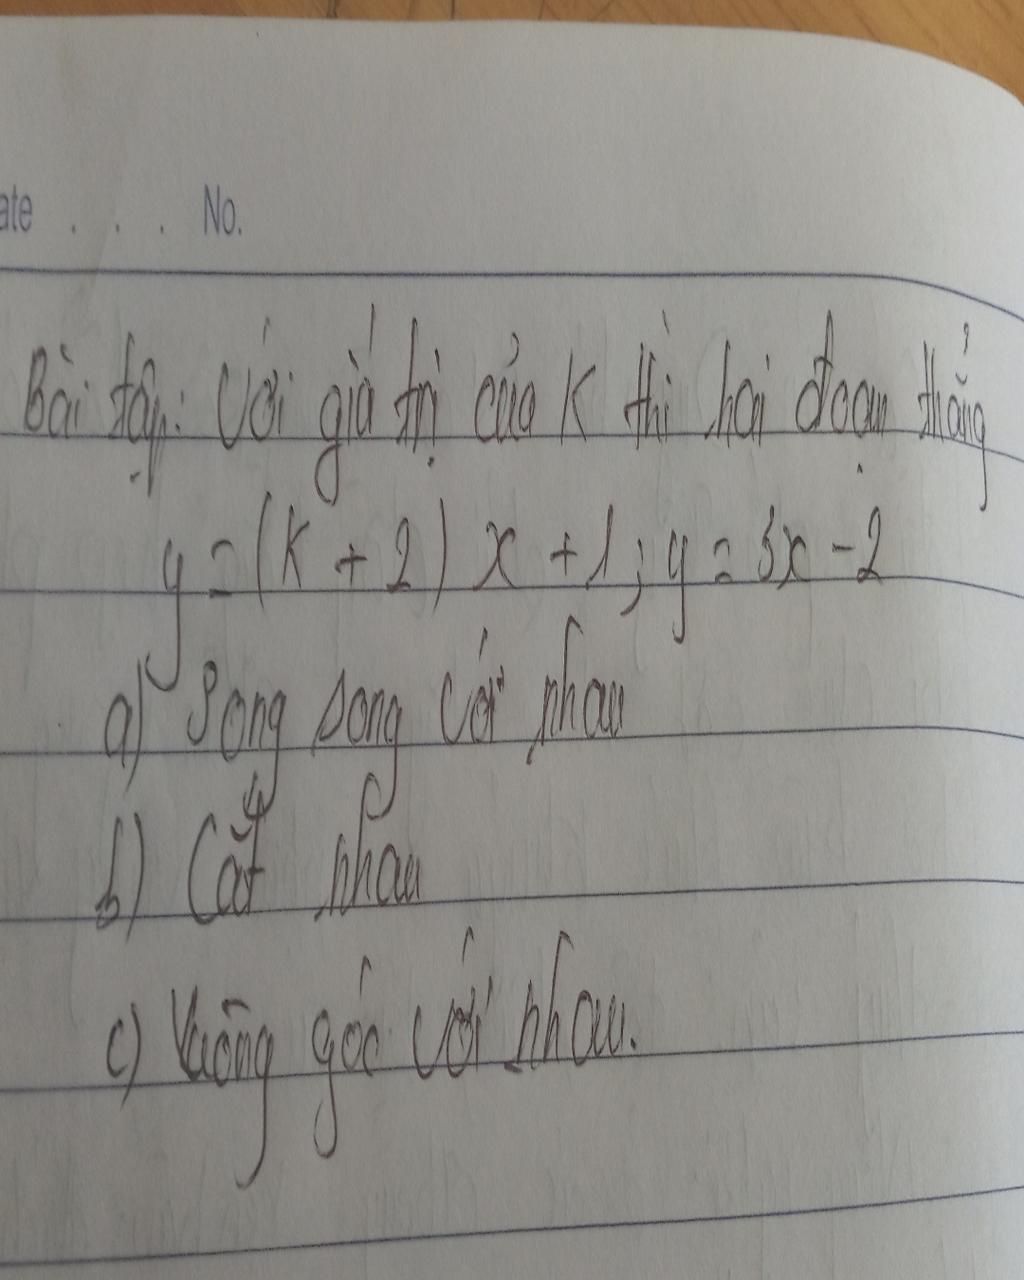 ate . . . No.
Bài tập: Với giá trị của K thì hai đoạn thẳng
y = (K + 2) x + 1 ; y = 3x - 2
a) Song song với nhau
b) Cắt nhau
c) Vuông góc với nhau.